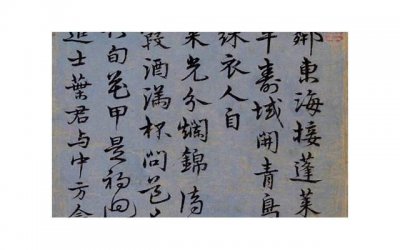 鄰東海接蓬萊
年壽域開青鳥
綵衣人自
光分爛錦
酒滿杯問
旬花甲是初
進士葉君与中方